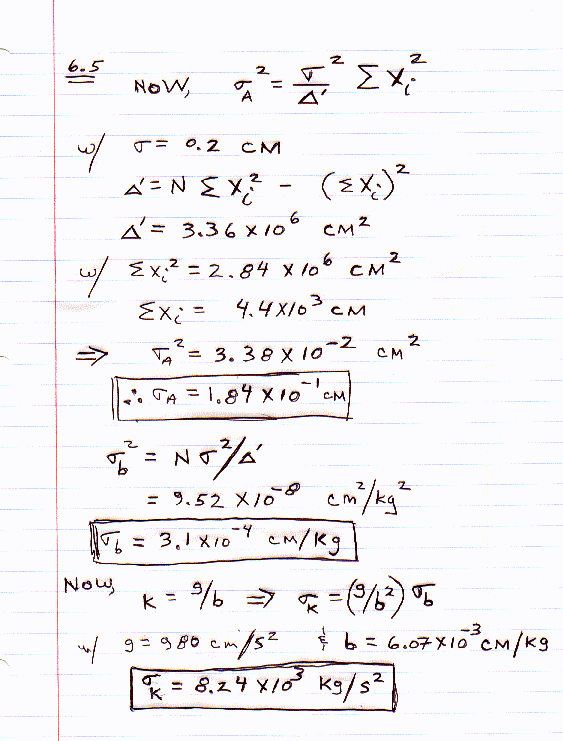 6.5
Now, σ_A² = σ²/Δ' Σ X_i²
w/ σ = 0.2 cm
Δ' = N Σ X_i² - (Σ X_i)²
Δ' = 3.36 × 10⁶ cm²
w/ Σ x_i² = 2.84 × 10⁶ cm²
Σ x_i = 4.4 × 10³ cm
⇒ σ_A² = 3.38 × 10⁻² cm²
∴ σ_A = 1.84 × 10⁻¹ cm
σ_b² = N σ²/Δ'
= 9.52 × 10⁻⁸ cm²/kg²
σ_b = 3.1 × 10⁻⁴ cm/kg
Now, k = g/b ⇒ σ_k = (g/b²) σ_b
w/ g = 980 cm/s² & b = 6.07 × 10⁻³ cm/kg
σ_k = 8.24 × 10³ kg/s²